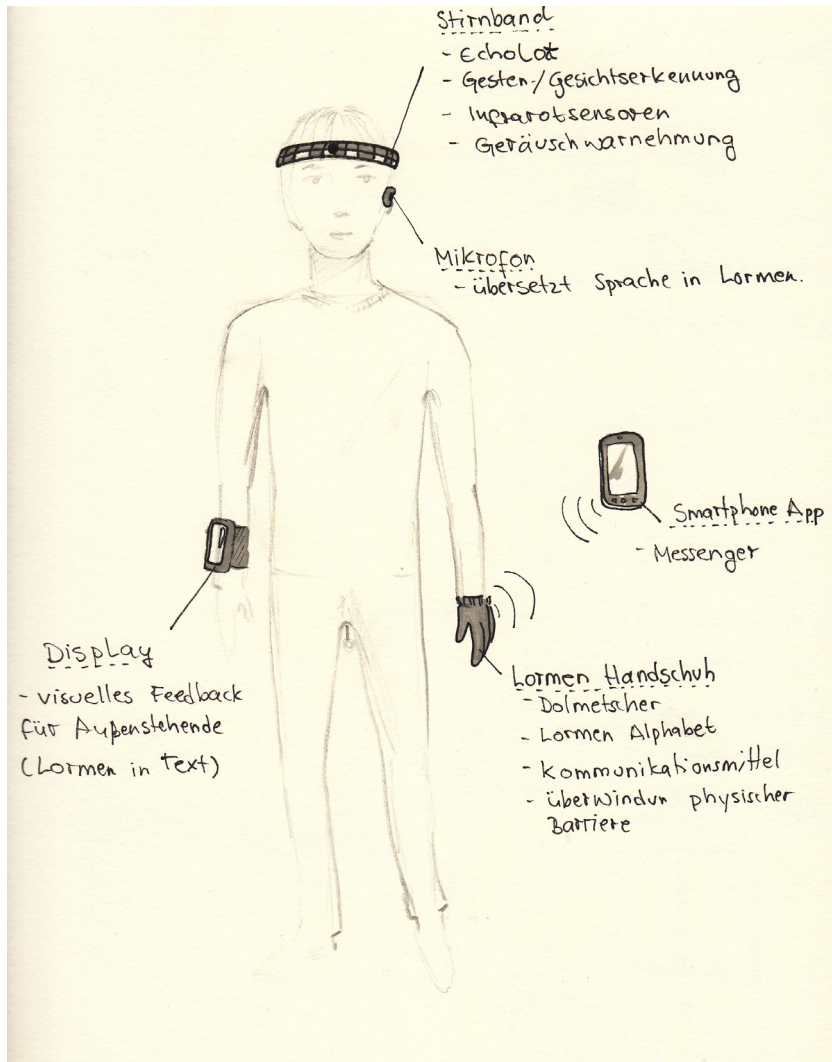 Stirnband
- Echolot
- Gesten-/Gesichtserkennung
- Infrarotsensoren
- Geräuschwarnehmung
Mikrofon
- übersetzt Sprache in Lormen.
Smartphone App
- Messenger
Display
- visuelles Feedback
für Außenstehende
(Lormen in Text)
Lormen Handschuh
- Dolmetscher
- Lormen Alphabet
- Kommunikationsmittel
- überwindun physischer
Barriere